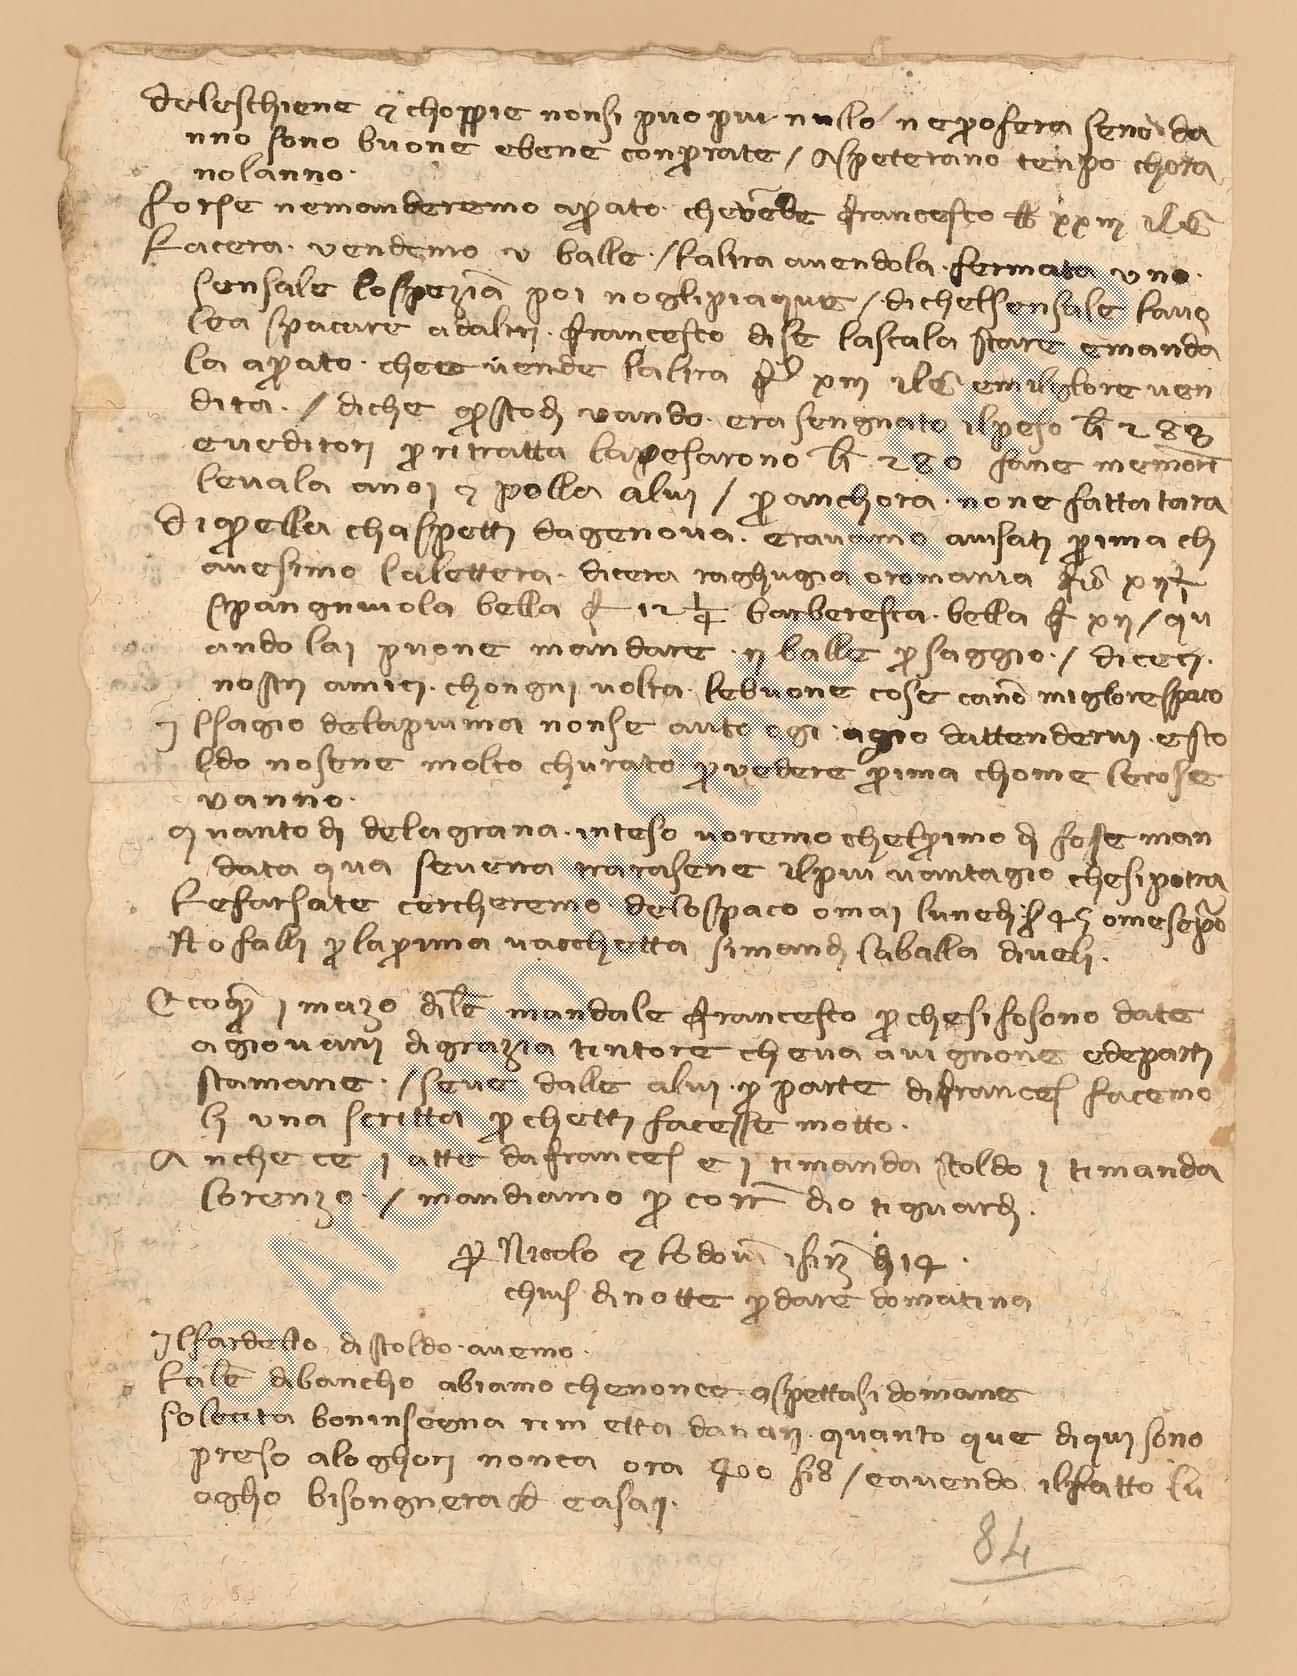 deleschiene e choppie nonsi puo piu nulo neprofera seno da
nno sono buone ebene conprate / Aspeterano tenpo chora
nolanno.
forse nemanderemo aprato. che vede francescho xxiij il c
Lacera. vendemo v balle / laltra avendola. fermata uno.
sensale lospeziā poi nogli piaque / di chelsensale lavo
lea spacare adaltri. francesco dise lascala stare emanda
la aprato. che vende laltra xiij il c emiglore ven
dita. / di che quando era sengnato il peso lb 288
e veditori pritratta lapesarono lb 280 fane memoria
levala a noi e polla alui / panchora. none fatta tara
Di quella chaspetti dagenova. eravamo avisati prima ch
avesimo lalettera. dicera raghugia oromania xij
spangniuola bella 12 1/4 barberesca. bella xij / qu
ando lai puone mandare ij balle psaggio. / diceci.
nostri amici. chongni volta. lebuone cose cano miglore spaco
Ilsagio delapiuma nonse auto ogi agio dattendervi. esto
ldo nosene molto churato pvedere prima chome lecose
vanno.
quanto di delagrana. inteso voremo chelprimo di fose man
data qua severra trarasene ilpiu vantagio chesipotra
Lefarsate cercheremo delospaco omai lunedi omese
No falli plaprima vacchetta simandi laballa diveli.
E coq j mazo dile mandale francesco pchesifosono date
agiovani digrazia tintore cheva avignone edeparti
stamane. / seve dalle alui. p parte difrances facemo
li una scritta pchetti facesse motto.
Anche ce j atte dafrances e j timanda stoldo j timanda
lorenzo. / mandiamo p dio tiguardi.
P Nicolo e lodovi 14.
chius dinotte pdare domatina
Ilfardello di stoldo. avemo.
dibancho abiamo chenonce. aspettasi domane
solecita boninsegna rimetta danari. quanto que diqui sono
preso aloghori nonca ora 400 / eavendo ilfatto lu
ogho bisongnera easai.
84
© ARCHIVIO DI STATO DI PRATO